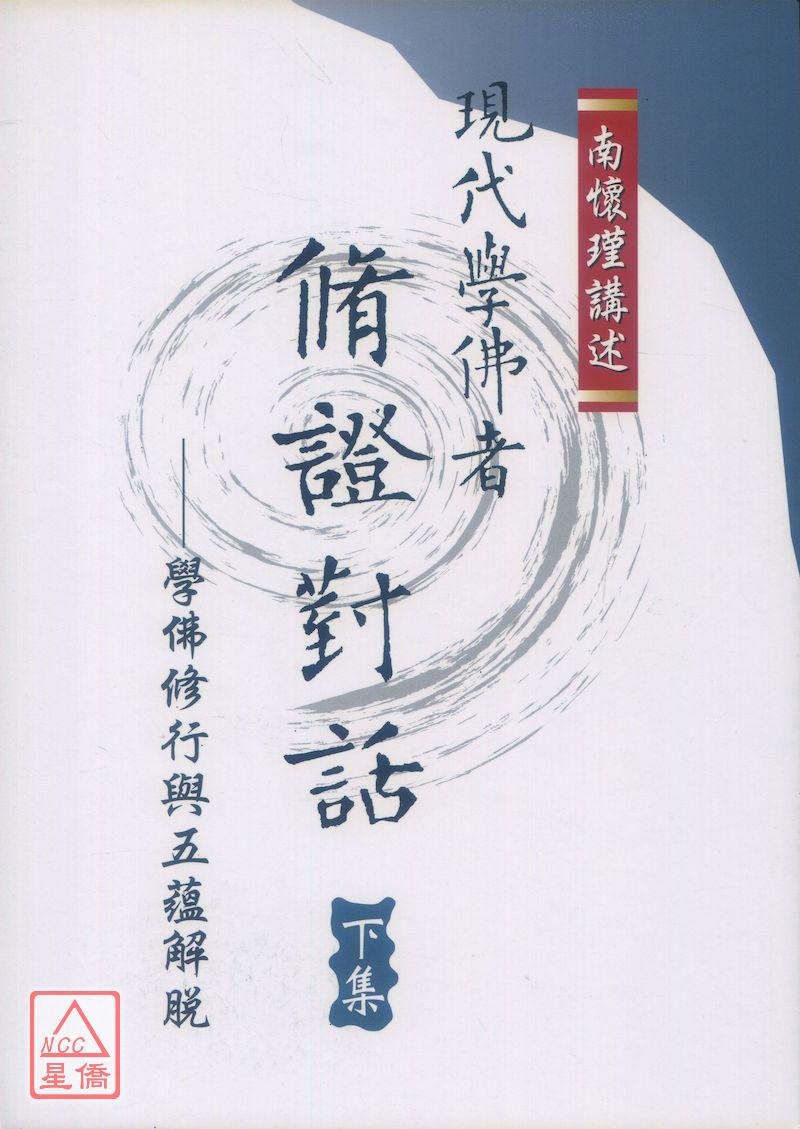 南懷瑾講述
現代學佛者
脩證對話
下集
——學佛修行與五蘊解脱
NCC
星僑